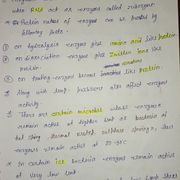 where RNA act as enzyme called ribozyme.
* Protein nature of enzyme can be proved by
following facts -
① on hydrolysis enzyme give amino acid like protein
② on dissociation enzyme give Zwitter ions like
protein
③ on heating enzyme become like protein.
④ Along with temp. increase also affect enzyme
activity.
* There are certain microbes whose enzymes
remain active at higher temp as bacteria of
hot spring, thermal, sulphur springs, their
enzymes remain active at
* In certain ice bacteria enzyme remain active
at very low temp